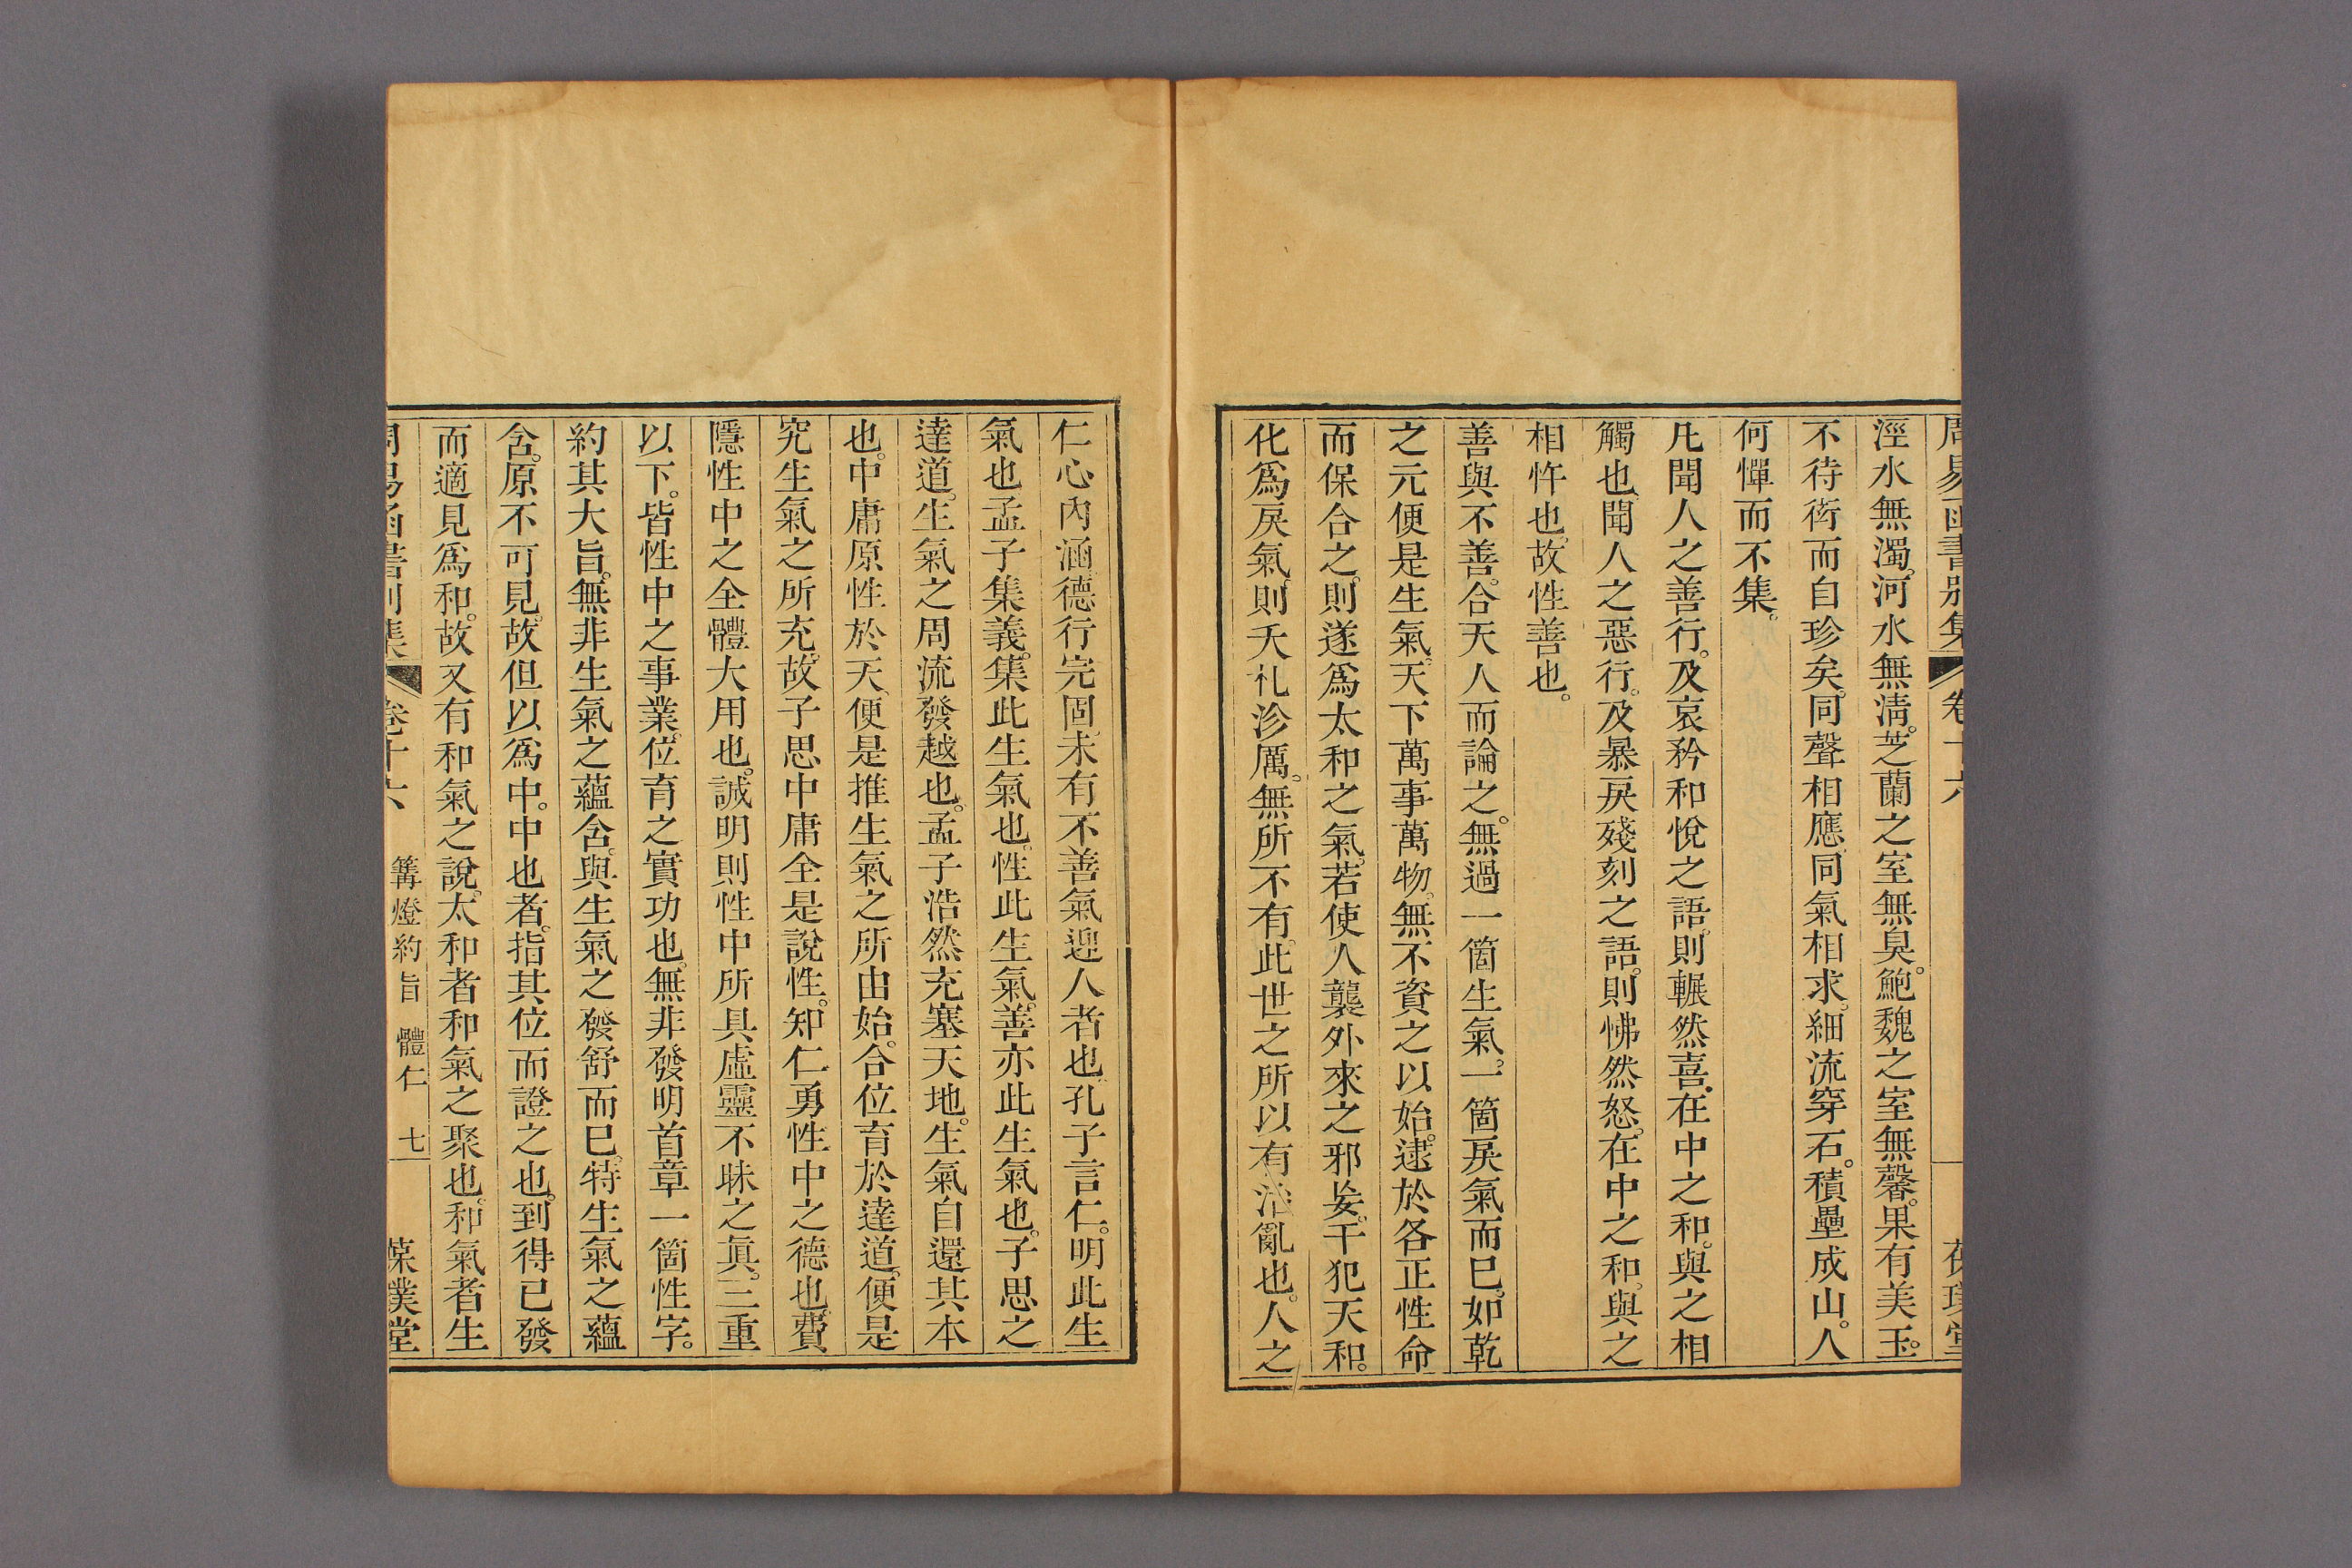 周易函書別集 卷十六
涇水無濁。河水無淸。芝蘭之室無臭。鮑魏之室無馨。果有美玉。
不待衒而自珍矣。同聲相應。同氣相求。細流穿石。積壘成山。人
何憚而不集。
凡聞人之善行。及哀矜和悅之語。則囅然喜。在中之和。與之相
觸也。聞人之惡行。及暴戾殘刻之語。則怫然怒。在中之和。與之
相忤也。故性善也。
善與不善。合天人而論之。無過一箇生氣。一箇戾氣而已。如乾
之元便是生氣。天下萬事萬物。無不資之以始。逮於各正性命
而保合之。則遂爲太和之氣。若使人襲外來之邪妄。干犯天和。
化爲戾氣。則夭札沴厲。無所不有。此世之所以有治亂也。人之
仁心內涵。德行完固。未有不善氣迎人者也。孔子言仁。明此生
氣也。孟子集義。集此生氣也。性此生氣。善亦此生氣也。子思之
達道。生氣之周流發越也。孟子浩然充塞天地。生氣自還其本
也。中庸原性於天。便是推生氣之所由始。合位育於達道。便是
究生氣之所充。故子思中庸全是說性。知仁勇性中之德也。費
隱性中之全體大用也。誠明則性中所具虛靈不昧之眞。三重
以下。皆性中之事業。位育之實功也。無非發明首章一箇性字。
約其大旨。無非生氣之蘊含。與生氣之發舒而已。特生氣之蘊
含。原不可見。故但以爲中。中也者。指其位而證之也。到得已發
而適見爲和。故又有和氣之說。太和者和氣之聚也。和氣者生
周易函書別集 卷十六 篝燈約旨 體仁 七 葆璞堂